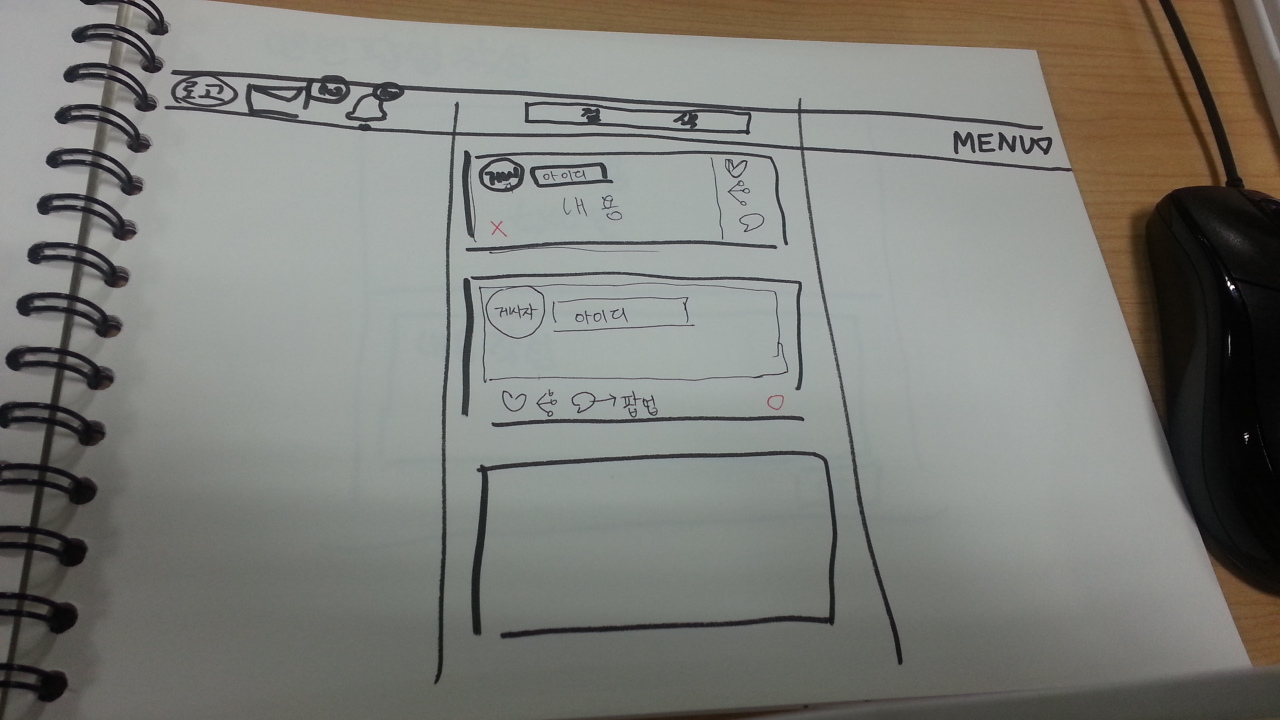 로고
검 색
MENU
아이디
내용
게시자
아이디
팝업